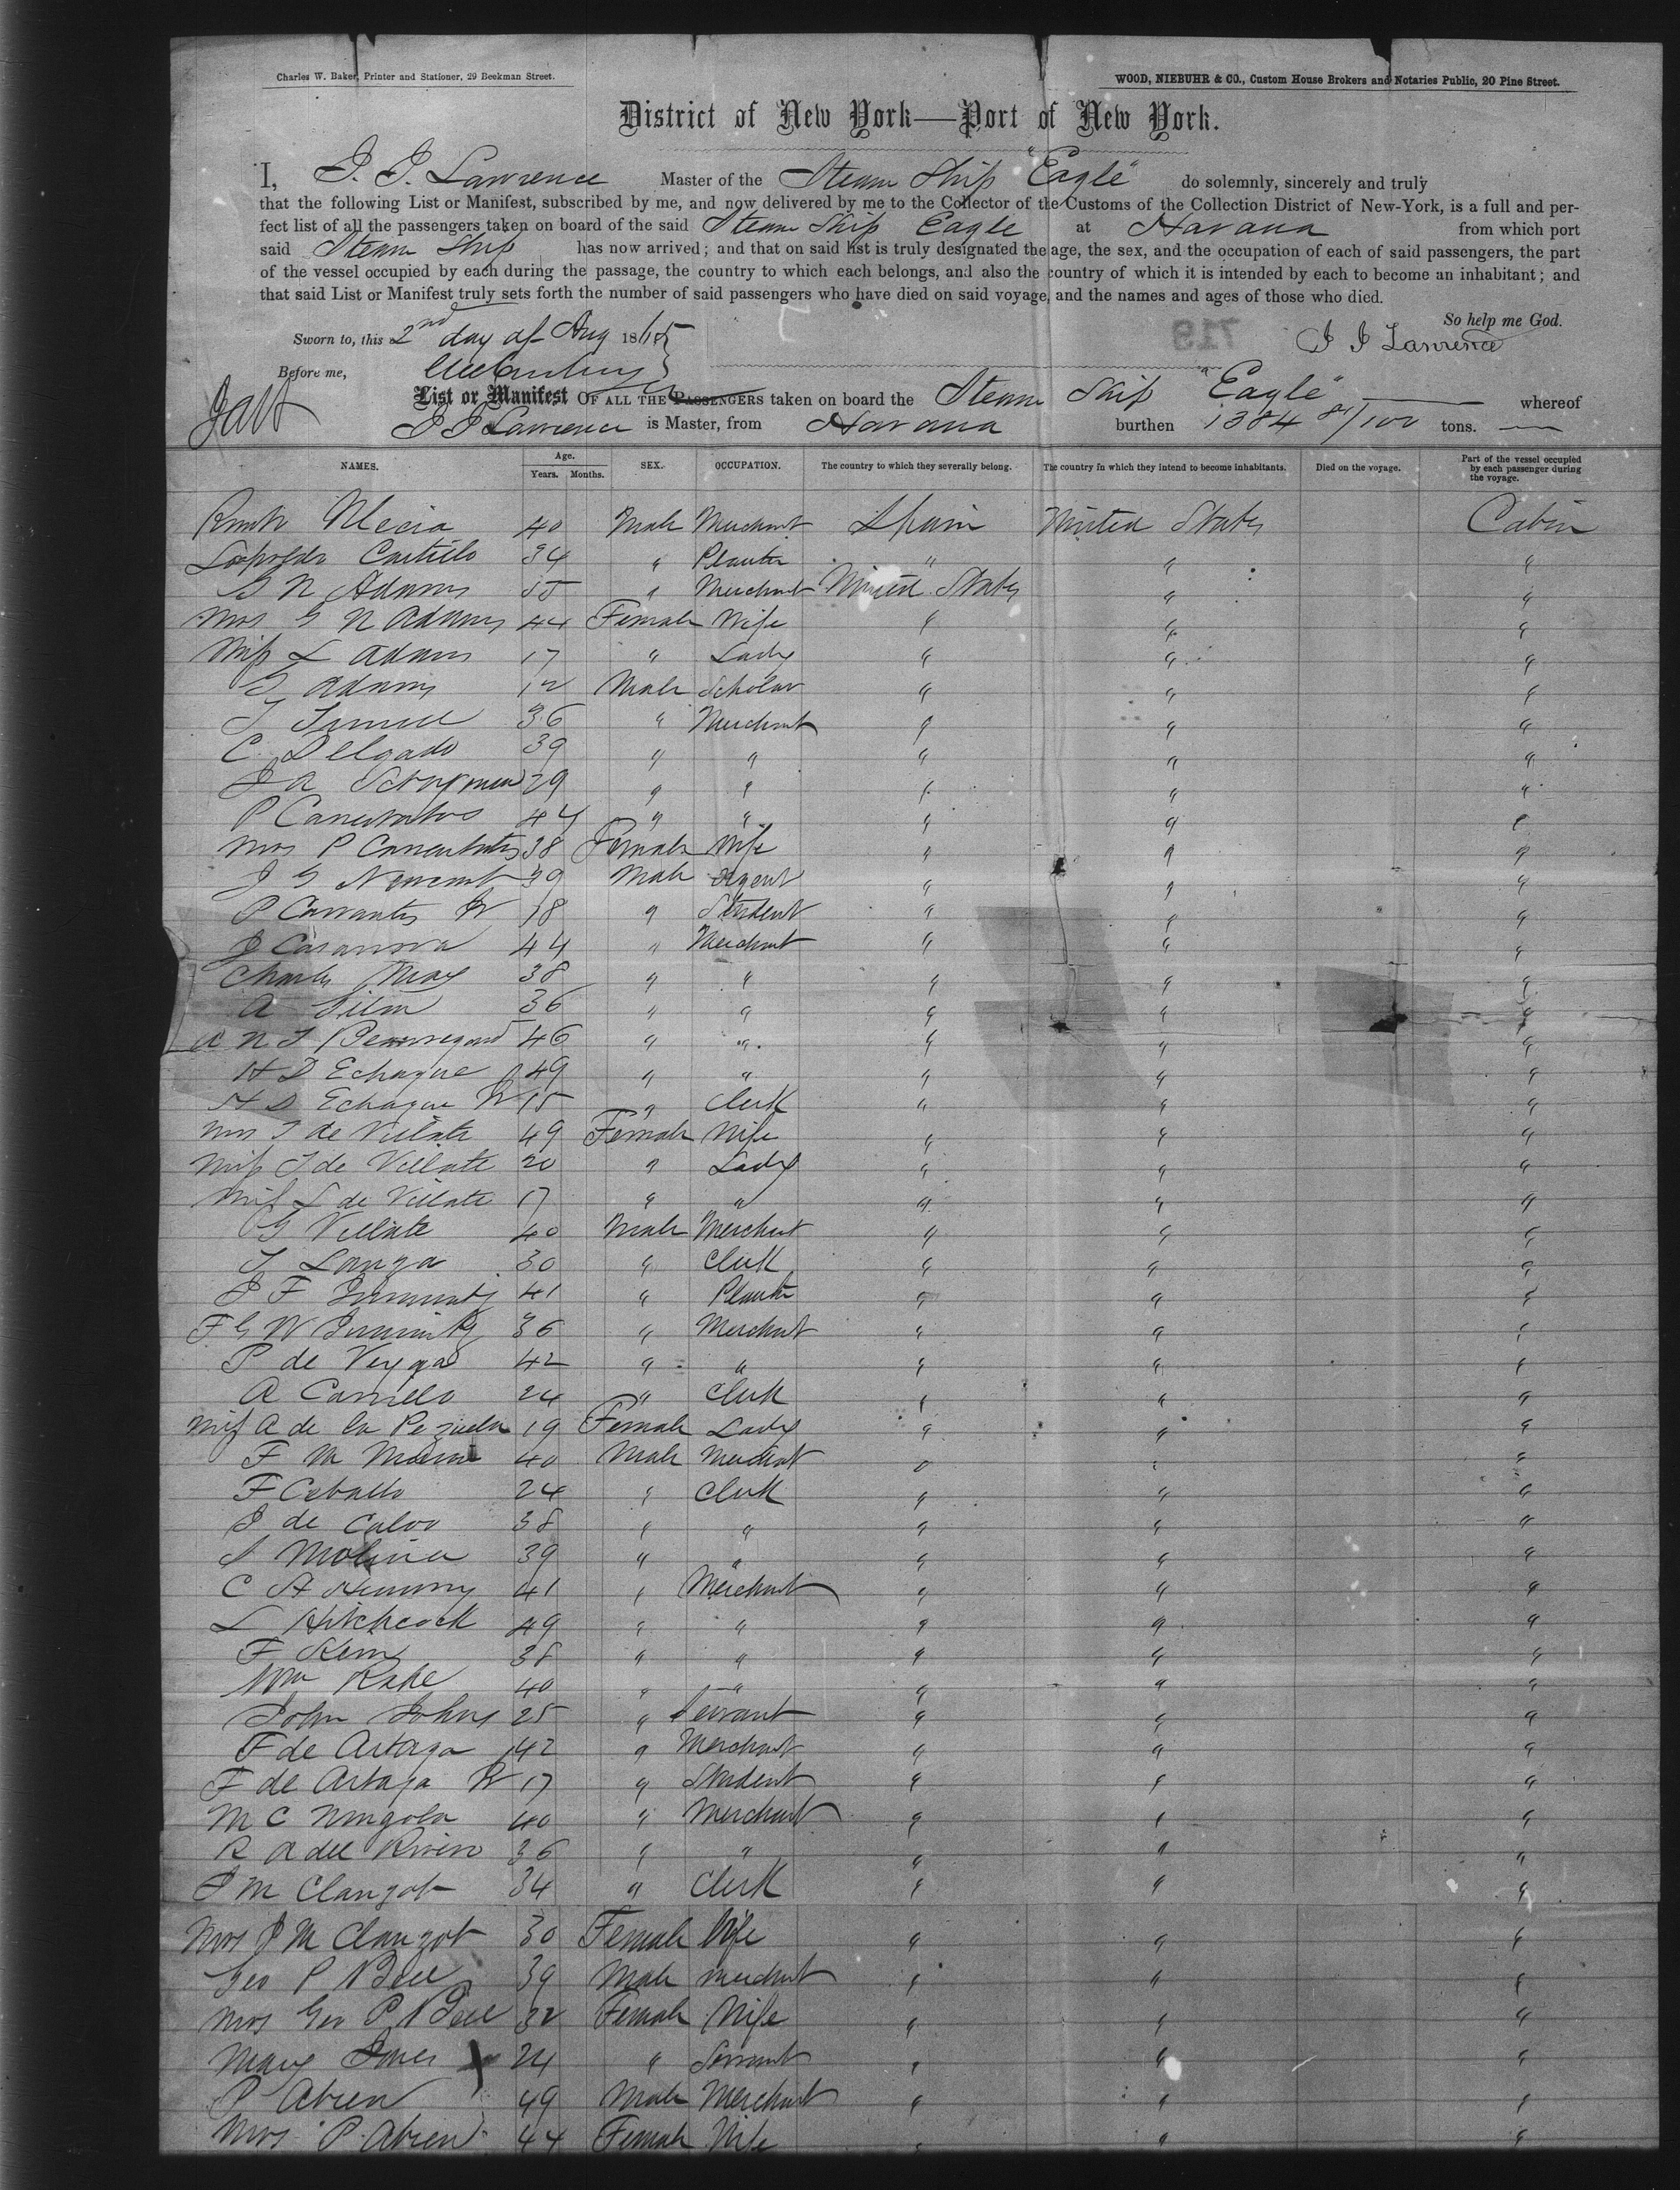 Charles W. Baker, Printer and Stationer, 29 Beekman Street.
WOOD, NIEBUHR & CO., Custom House Brokers and Notaries Public, 20 Pine Street.
District of New York—Port of New York.
I, J. J. Lawrence Master of the Steam Ship "Eagle" do solemnly, sincerely and truly
that the following List or Manifest, subscribed by me, and now delivered by me to the Collector of the Customs of the Collection District of New-York, is a full and per-
fect list of all the passengers taken on board of the said Steam Ship Eagle at Havana from which port
said Steam Ship has now arrived; and that on said list is truly designated the age, the sex, and the occupation of each of said passengers, the part
of the vessel occupied by each during the passage, the country to which each belongs, and also the country of which it is intended by each to become an inhabitant; and
that said List or Manifest truly sets forth the number of said passengers who have died on said voyage, and the names and ages of those who died.
So help me God.
Sworn to, this 2nd day of Aug 1865
J J Lawrence
719
Before me,
List or Manifest OF ALL THE PASSENGERS taken on board the Steam Ship "Eagle" whereof
J J Lawrence is Master, from Havana burthen 1384 81/100 tons.
NAMES. Age. Years. Months. SEX. OCCUPATION. The country to which they severally belong. The country in which they intend to become inhabitants. Died on the voyage. Part of the vessel occupied by each passenger during the voyage.
40 Male Merchant Spain United States Cabin
Leopoldo Castillo 34 " Planter " " "
G N Adams 55 " Merchant United States " "
Mrs G N Adams 44 Female Wife " " "
Miss L Adams 17 " Lady " " "
G Adams 12 Male Scholar " " "
36 " Merchant " " "
C Delgado 39 " " " " "
J A 29 " " " " "
P 44 " " " " "
Mrs P 38 Female Wife " " "
J G 39 Male Agent " " "
P Jr 18 " Student " " "
J Casanova 44 " Merchant " " "
Charles May 38 " " " " "
A 36 " " " " "
A N T Beauregard 46 " " " " "
H D Echague 49 " " " " "
H D Echague Jr 15 " Clerk " " "
Mrs T de Villate 49 Female Wife " " "
Miss T de Villate 20 " Lady " " "
Miss L de Villate 17 " " " " "
G Villate 40 Male Merchant " " "
T Langa 30 " Clerk " " "
J F 41 " Planter " " "
F G W 36 " Merchant " " "
P de Veyga 42 " " " " "
A Carrillo 24 " Clerk " " "
Miss A de la Pezuela 19 Female Lady " " "
F M 40 Male Merchant " " "
F Ceballo 24 " Clerk " " "
J de Calvo 38 " " " " "
S Molina 39 " " " " "
C A 41 " Merchant " " "
L Hitchcock 49 " " " " "
F Kern 38 " " " " "
Wm Rahe 40 " " " " "
John Johns 25 " Servant " " "
F de Artaga 42 " Merchant " " "
F de Artaga Jr 17 " Student " " "
M C 40 " Merchant " " "
R A del Rivero 36 " " " " "
J M Clauzot 34 " Clerk " " "
Mrs J M Clauzot 30 Female Wife " " "
Geo P Bell 39 Male Merchant " " "
Mrs Geo P Bell 32 Female Wife " " "
Mary Jones 24 " Servant " " "
P Abreu 49 Male Merchant " " "
Mrs P Abreu 44 Female Wife " " "